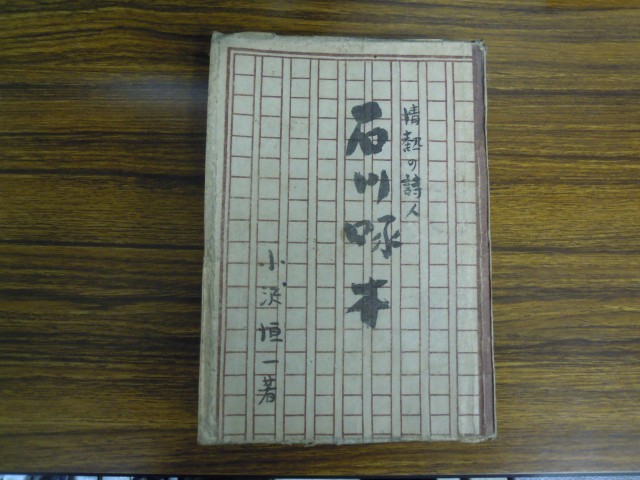 情熱の詩人
石川啄木
小沢恒一著